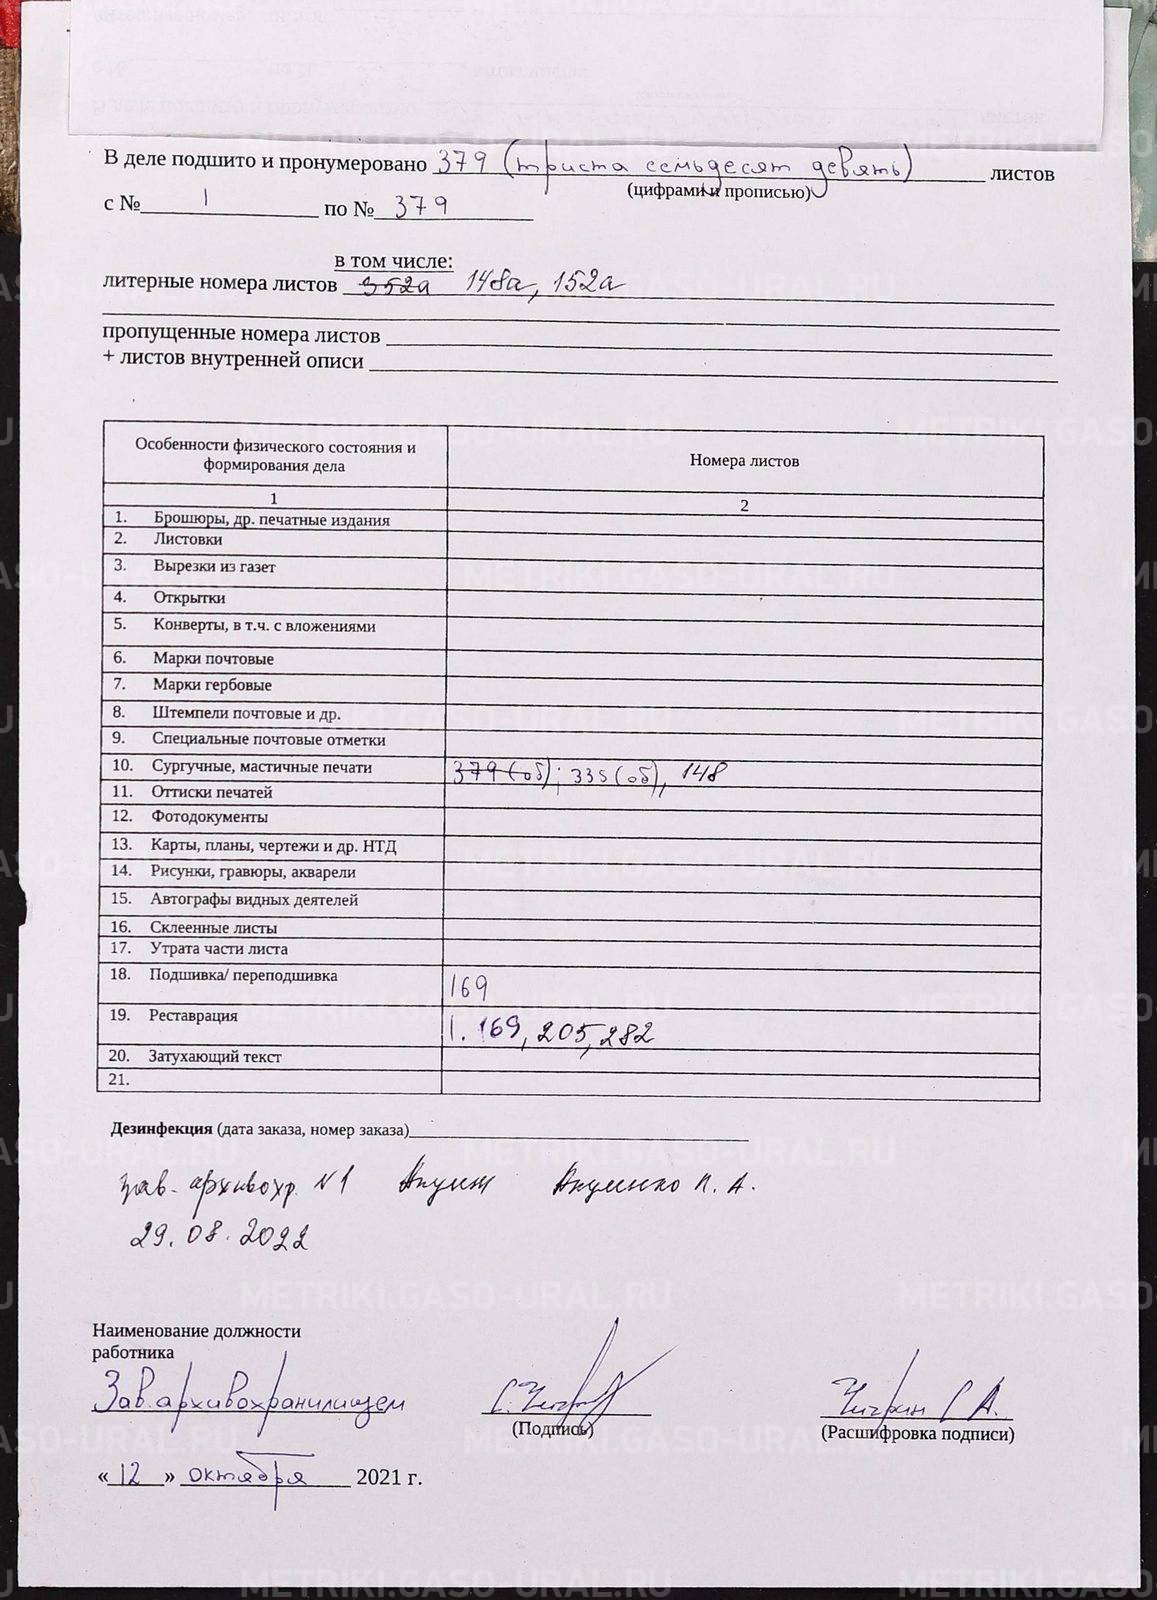 В деле подшито и пронумеровано 379 (триста семьдесят девять) листов
(цифрами и прописью)
с № 1 по № 379
в том числе:
литерные номера листов 352а 148а, 152а
пропущенные номера листов
+ листов внутренней описи
Особенности физического состояния и формирования дела
Номера листов
1 2
1. Брошюры, др. печатные издания
2. Листовки
3. Вырезки из газет
4. Открытки
5. Конверты, в т.ч. с вложениями
6. Марки почтовые
7. Марки гербовые
8. Штемпели почтовые и др.
9. Специальные почтовые отметки
10. Сургучные, мастичные печати 379 (об); 335 (об), 148
11. Оттиски печатей
12. Фотодокументы
13. Карты, планы, чертежи и др. НТД
14. Рисунки, гравюры, акварели
15. Автографы видных деятелей
16. Склеенные листы
17. Утрата части листа
18. Подшивка/ переподшивка 169
19. Реставрация 1. 169, 205, 282
20. Затухающий текст
21.
Дезинфекция (дата заказа, номер заказа)
зав. архивохр. №1 Акуленко Н. А.
29.08.2022
Наименование должности
работника
Зав. архивохранилищем
(Подпись)
Чигрин С А.
(Расшифровка подписи)
«12» октября 2021 г.
METRIKI.GASO-URAL.RU